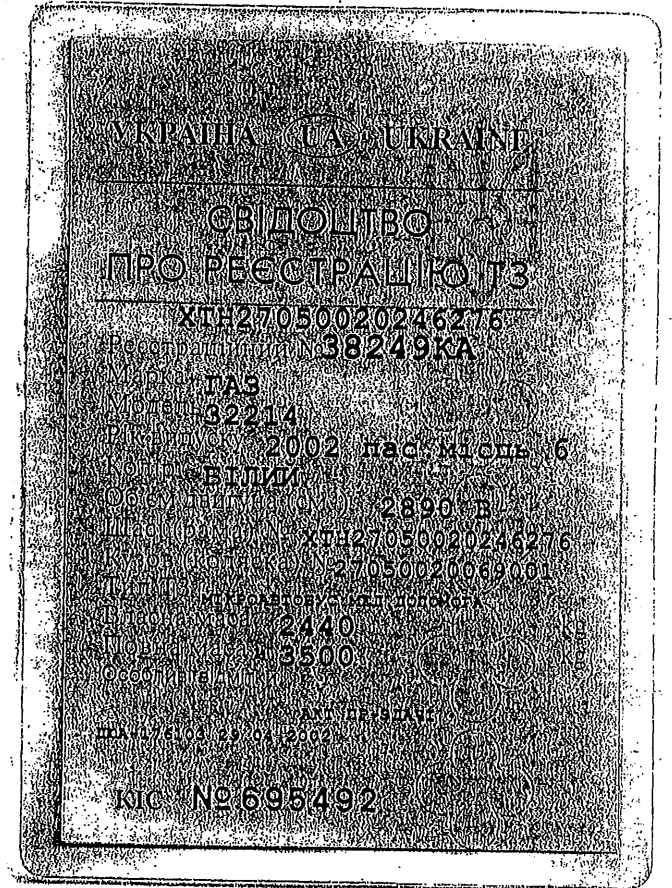 УКРАЇНА UA UKRAINE
СВІДОЦТВО
ПРО РЕЄСТРАЦІЮ ТЗ
XTH27050020246276
Реєстраційний № 38249КА
Марка ГАЗ
Модель 32214
Рік випуску 2002 пас.місць 6
Колір БІЛИЙ
Об'єм двигуна 2890 В
Шасі (рама) № XTH27050020246276
Кузов (коляска) № 27050020069001
Тип ТЗ МІКРОАВТОБУС МЕД ДОПОМОГА
Власна маса 2440 kg
Повна маса 3500 kg
Особливі відмітки
АКТ ПР-ЗДАЧІ
29.04.2002
КІС № 695492